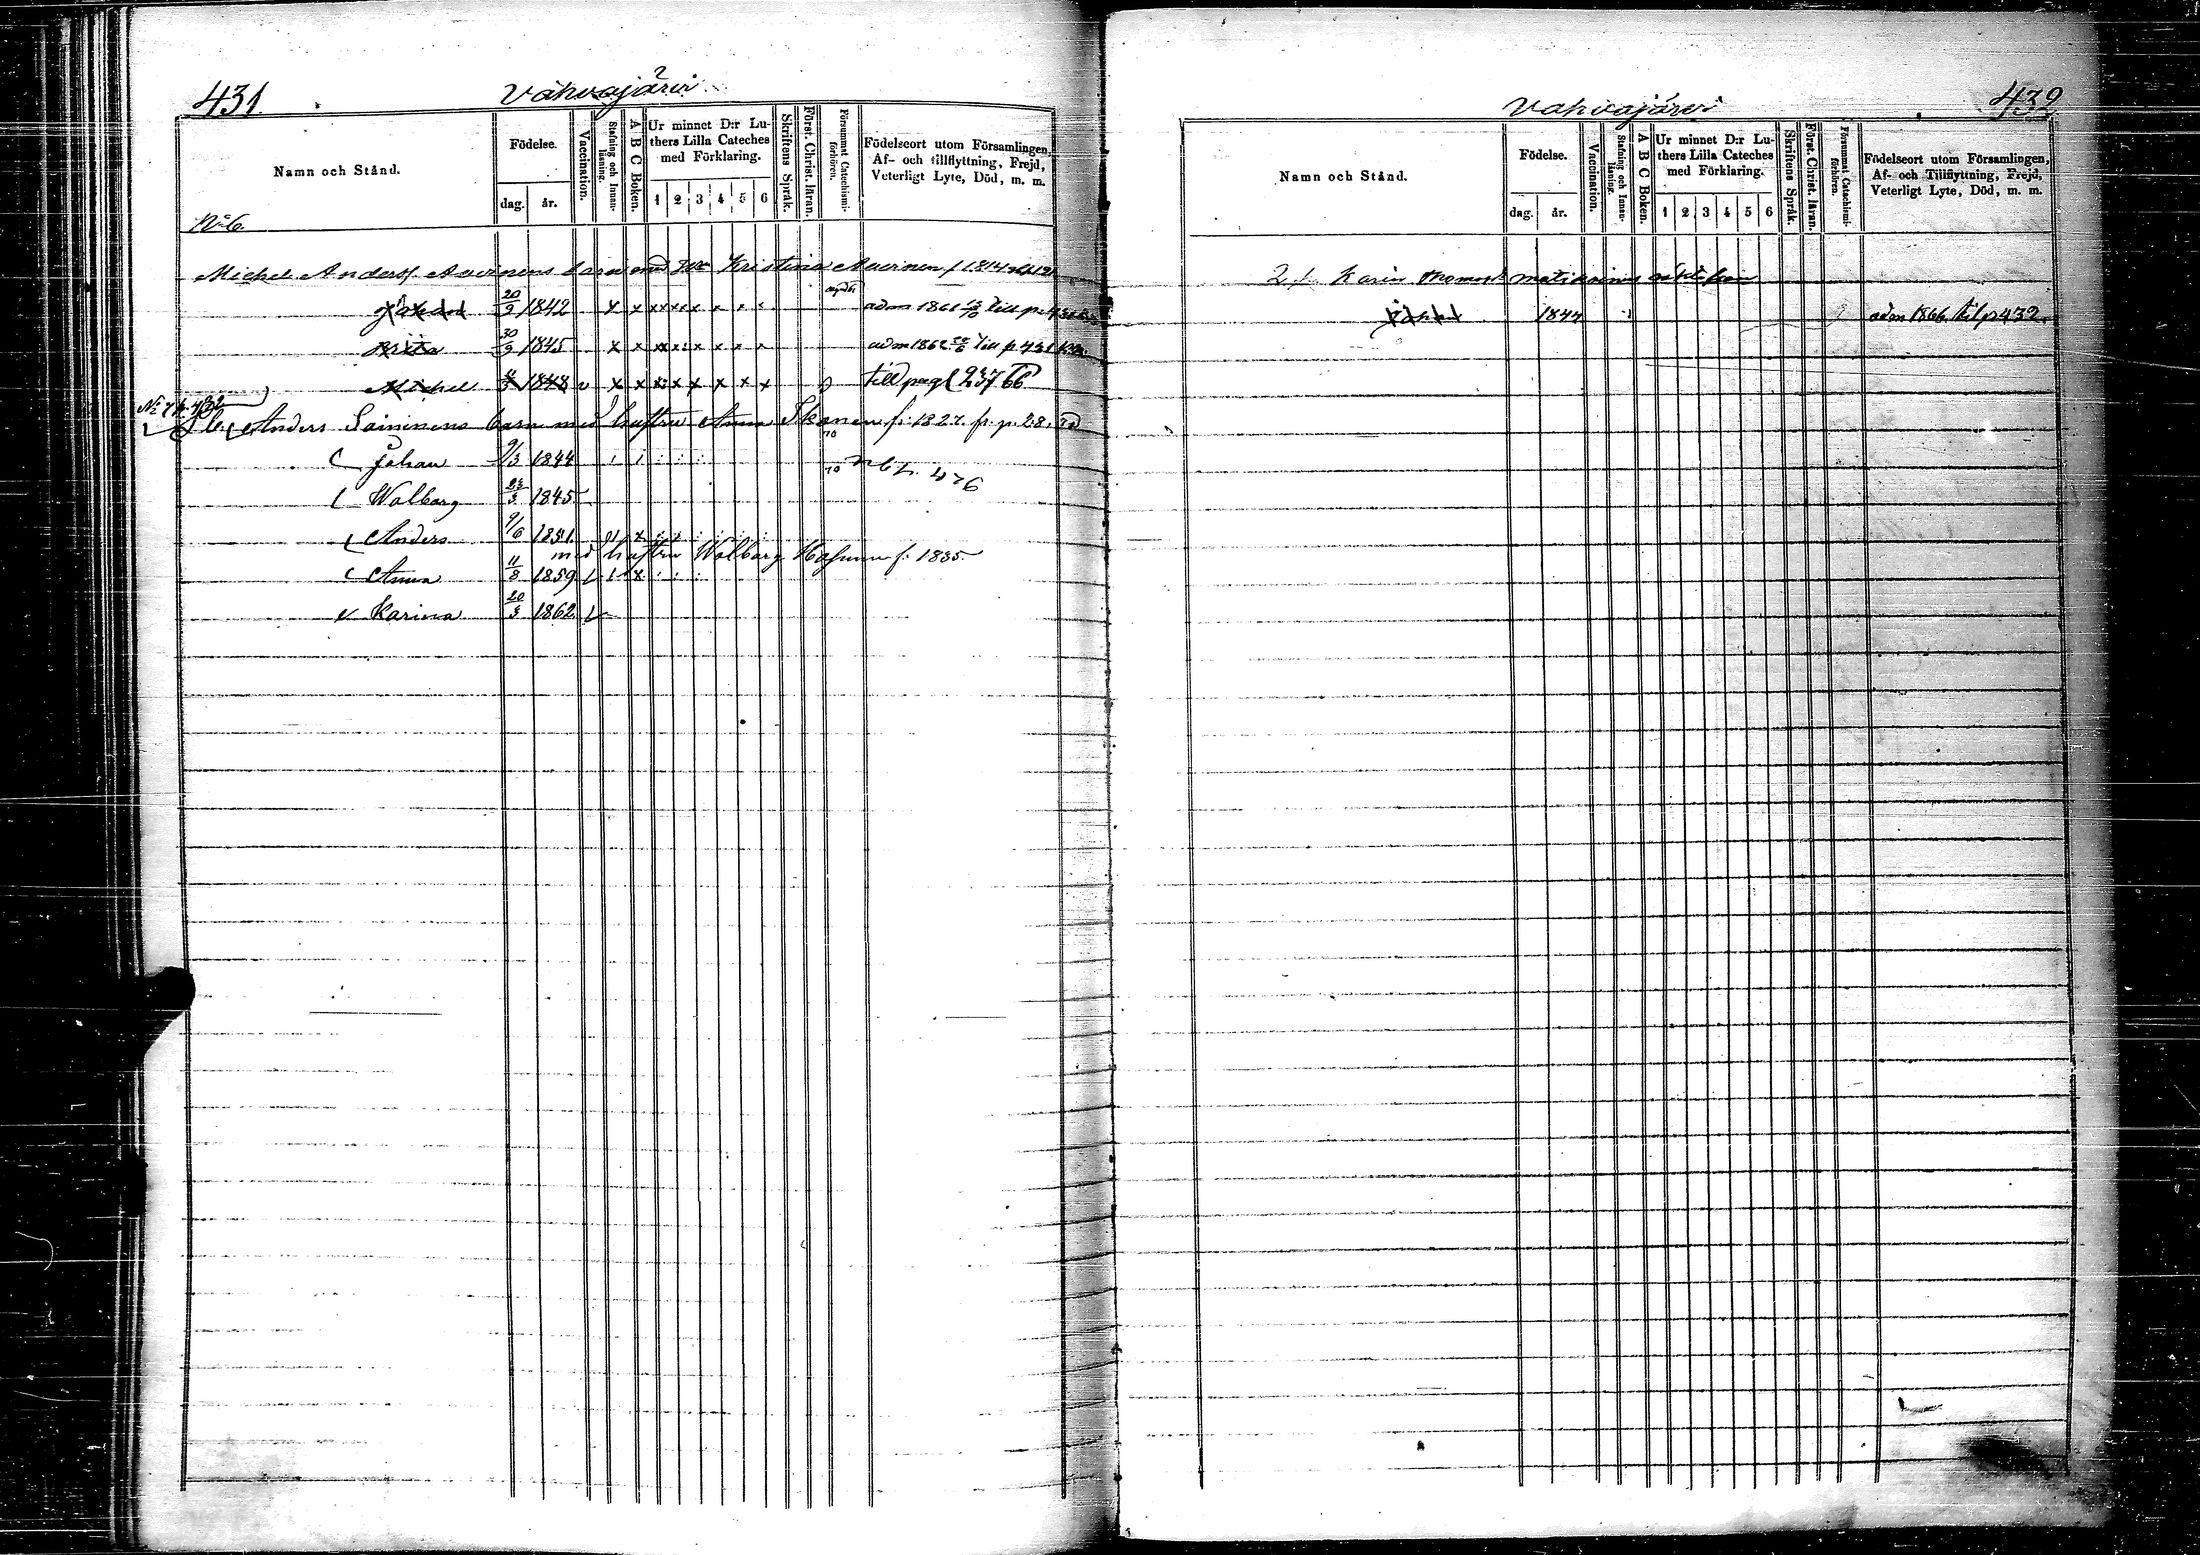 431.
Vahvajärvi
Namn och Stånd.
Födelse.
dag. år.
Vaccination.
Stafning och Innan-läsning.
A B C Boken.
Ur minnet D:r Lu-
thers Lilla Cateches
med Förklaring.
1 2 3 4 5 6
Skriftens Språk.
Först. Christ. läran.
Försummat Catechismi-förhören.
Födelseort utom Församlingen,
Af- och tillflyttning, Frejd,
Veterligt Lyte, Död, m. m.
No 6.
Michel Anderss. Auvinens barn med Kristina Auvinen f 1814
Johan 20/9 1842 x x x x x x x x x adm 1861 till p.
Brita 30/9 1845 x x x x x x x x adm 1862 till p. 431
Michel 1848 v x x x x x x x x till pag 237 66
No 7 p. 432
Anders Soininens barn med hustru Anna Ikonen f. 1827. fr. p. 28.
Johan 9/3 1844
Walborg 23/3 1845
Anders 9/6 1851 x
med hustru Walborg f. 1835
Anna 11/8 1859 x
Karina 20/3 1862
Vahvajärvi
432
Namn och Stånd.
Födelse.
dag. år.
Vaccination.
Stafning och Innan-läsning.
A B C Boken.
Ur minnet D:r Lu-
thers Lilla Cateches
med Förklaring.
1 2 3 4 5 6
Skriftens Språk.
Först. Christ. läran.
Försummat Catechismi-förhören.
Födelseort utom Församlingen,
Af- och Tillflyttning, Frejd,
Veterligt Lyte, Död, m. m.
Karin
1844 adm 1866 til p 432.